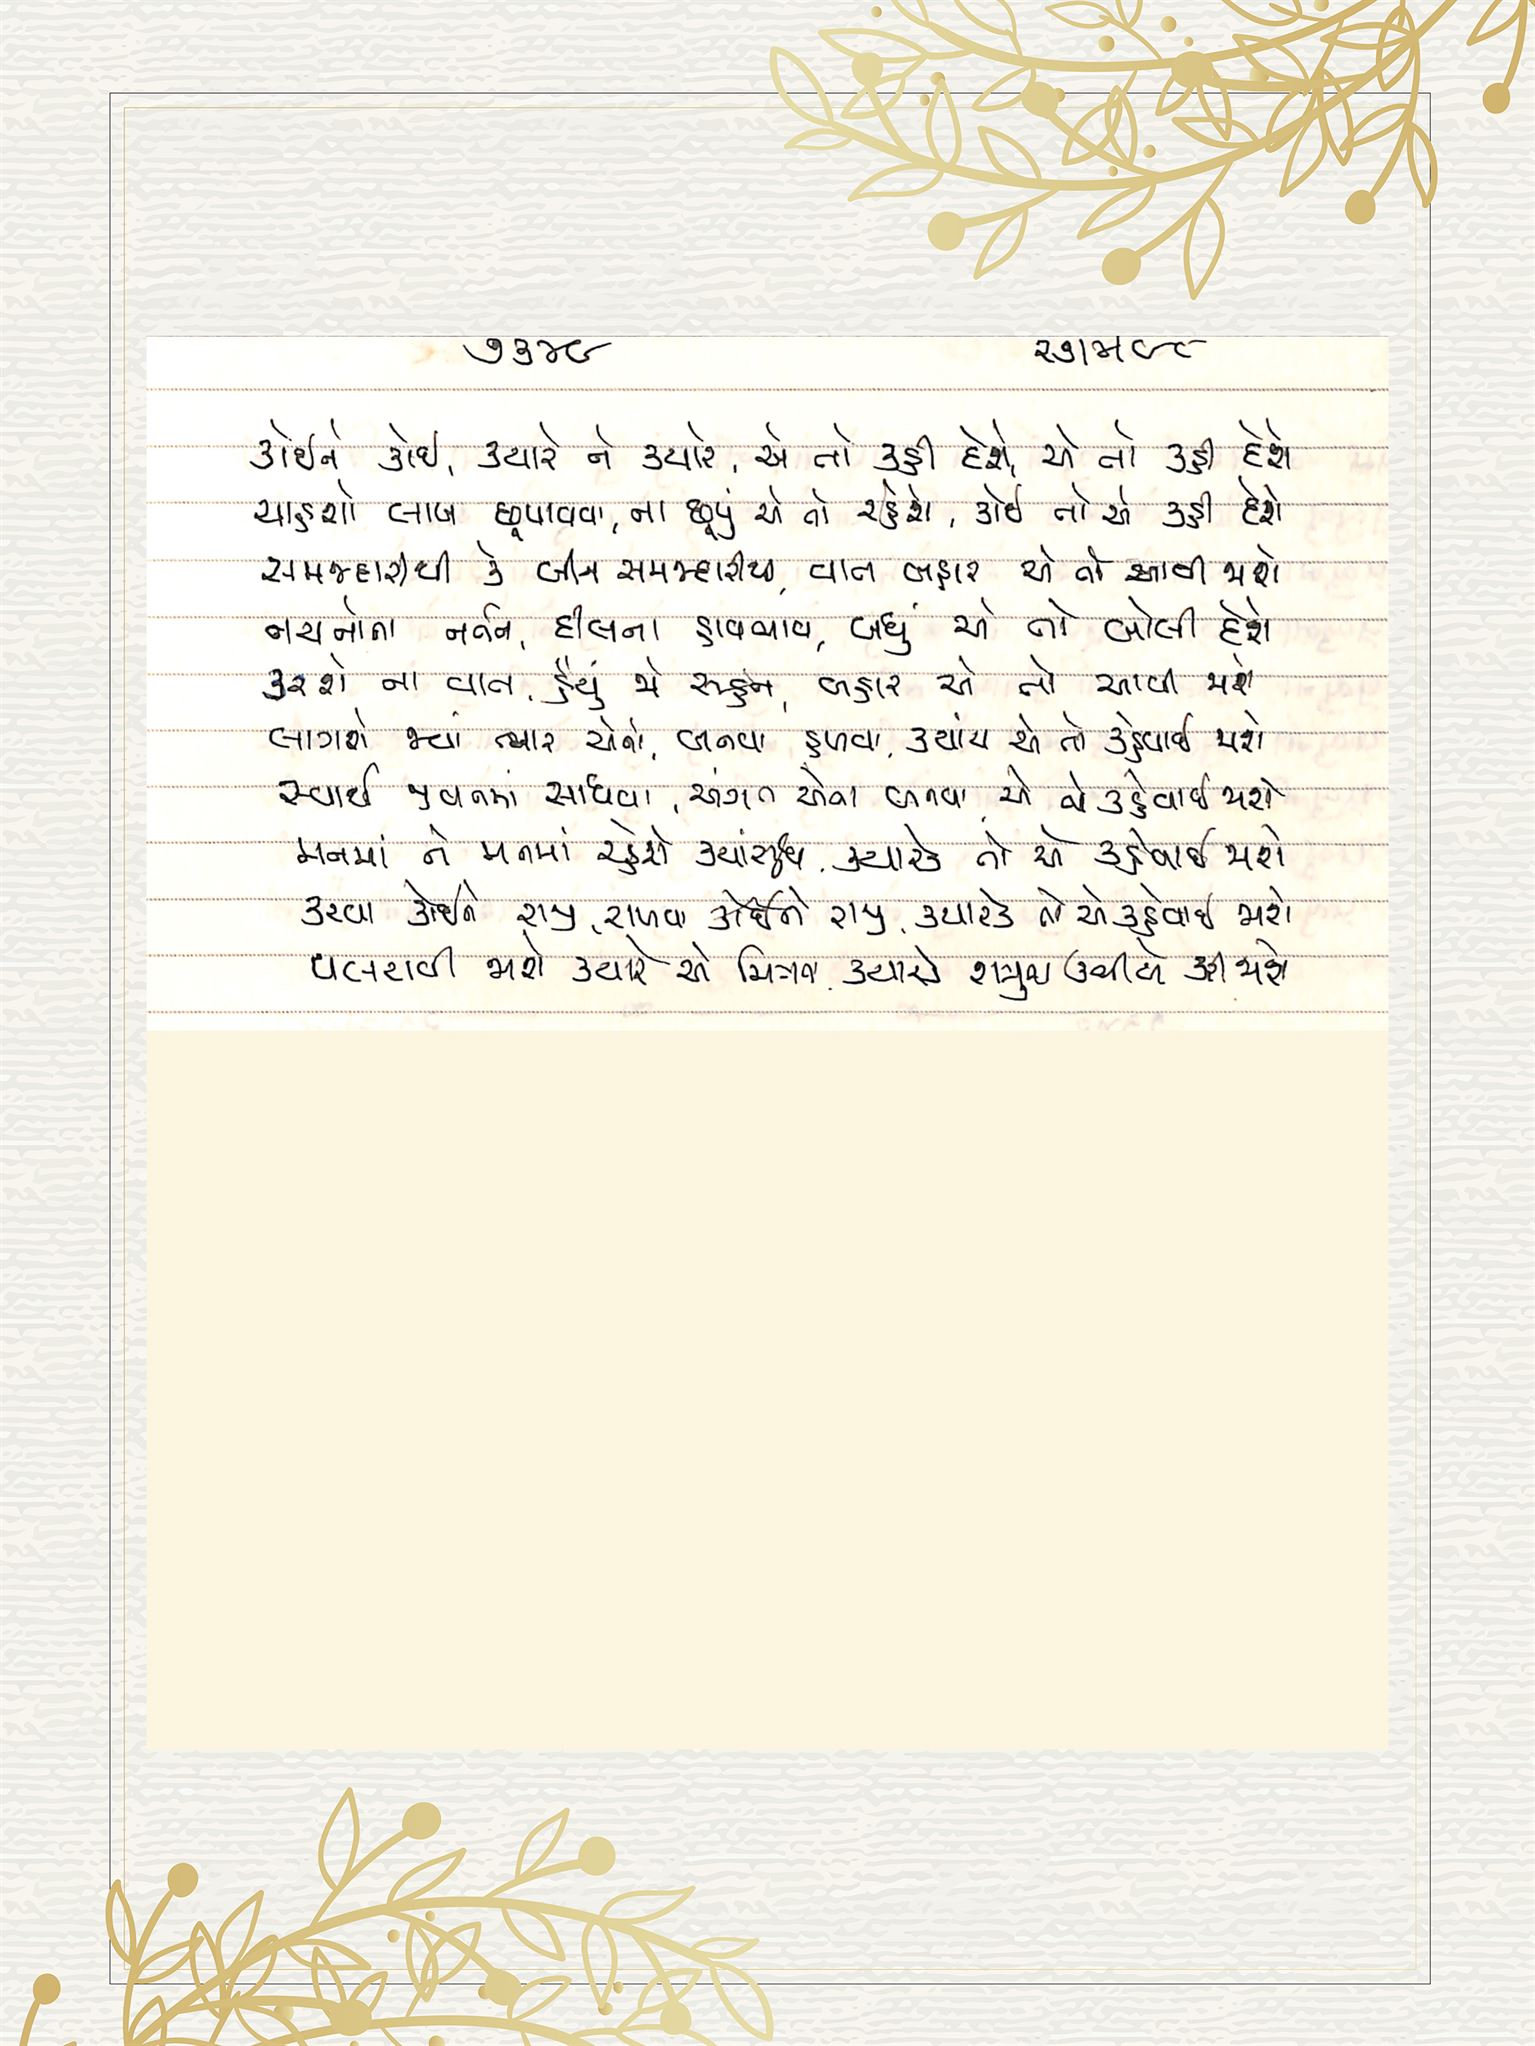 ૭૩૪૯ ૨૭ામ૯૮
કોઈને કોઈ, ક્યારે ને ક્યારે, એ તો કહી દેશે, એ તો કહી દેશે
ચાહશો લાખ છૂપાવવા, ના છૂપું એ તો રહેશે, કોઈ તો એ કહી દેશે
સમજદારીથી કે બીન સમજદારીથી, વાત બહાર એ તો આવી જાશે
નયનોના નર્તન, દીલના હાવભાવ, બધું એ તો બોલી દેશે
કરશે ના વાત, હૈયું જો સહન, બહાર એ તો આવી જાશે
લાગશે જ્યાં ત્યાર એને, બનવા હળવા, ક્યાંય એ તો કહેવાઈ જાશે
સ્વાર્થ જીવનમાં સાધવા, અંગત એના બનવા, એ તો કહેવાઈ જાશે
મનમાં ને મનમાં રહેશે ક્યાંસુધી, ક્યારેક તો એ કહેવાઈ જાશે
કરવા કોઈને રાજી, રાખવા કોઈને રાજી, ક્યારેક તો એ કહેવાઈ જાશે
બજાવી જાશે ક્યારે એ મિત્રતા, ક્યારેક શત્રુતા ઉભી એ કરી જાશે